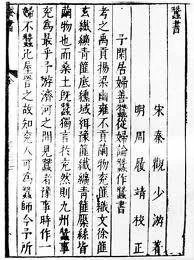 蠶書
宋秦觀少游著
明周履靖校正
予閒居婦善蠶從婦論蠶作蠶書
考之禹貢揚梁幽雍不貢繭物兗篚織文徐篚
玄纖縞荊篚玄纁璣組豫篚纖纊青篚檿絲皆
繭物也而桑土既蠶獨言於兗然則九州蠶事
兗為最乎予游濟河之間見蠶者豫事時作一
婦不蠶比屋詈之故知兗人可為蠶師今予所